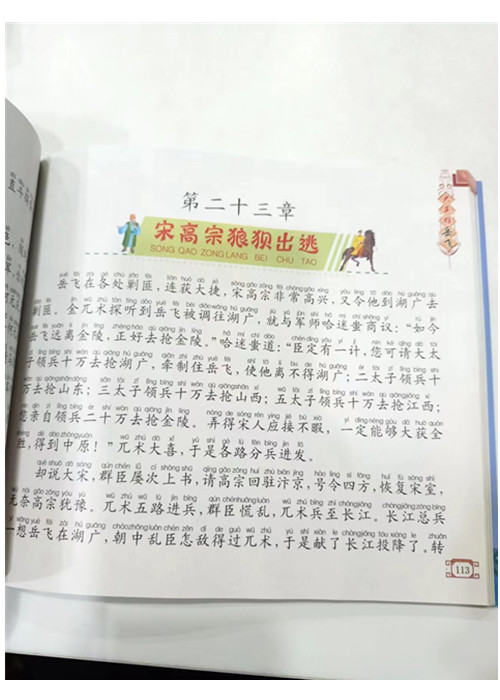 第二十三章
宋高宗狼狈出逃
SONG GAO ZONG LANG BEI CHU TAO
岳飞在各处剿匪，连获大捷，宋高宗非常高兴，又令他到湖广去
剿匪。金兀术探听到岳飞被调往湖广，就与军师哈迷蚩商议：“如今
岳飞远离金陵，正好去抢金陵。”哈迷蚩道：“臣定有一计，您可请大太
子领兵十万去抢湖广，牵制住岳飞，使他离不得湖广；二太子领兵十
万去抢山东；三太子领兵十万去抢山西；五太子领兵十万去抢江西；
您亲自领兵二十万去抢金陵。弄得宋人应接不暇，一定能够大获全
胜，得到中原！”兀术大喜，于是各路分兵进发。
却说大宋，群臣屡次上书，请高宗回驻汴京，号令四方，恢复宋室，
无奈高宗犹豫。兀术五路进兵，群臣慌乱，兀术兵至长江。长江总兵
一想岳飞在湖广，朝中乱臣怎敌得过兀术，于是献了长江投降了，转
113
岳飞